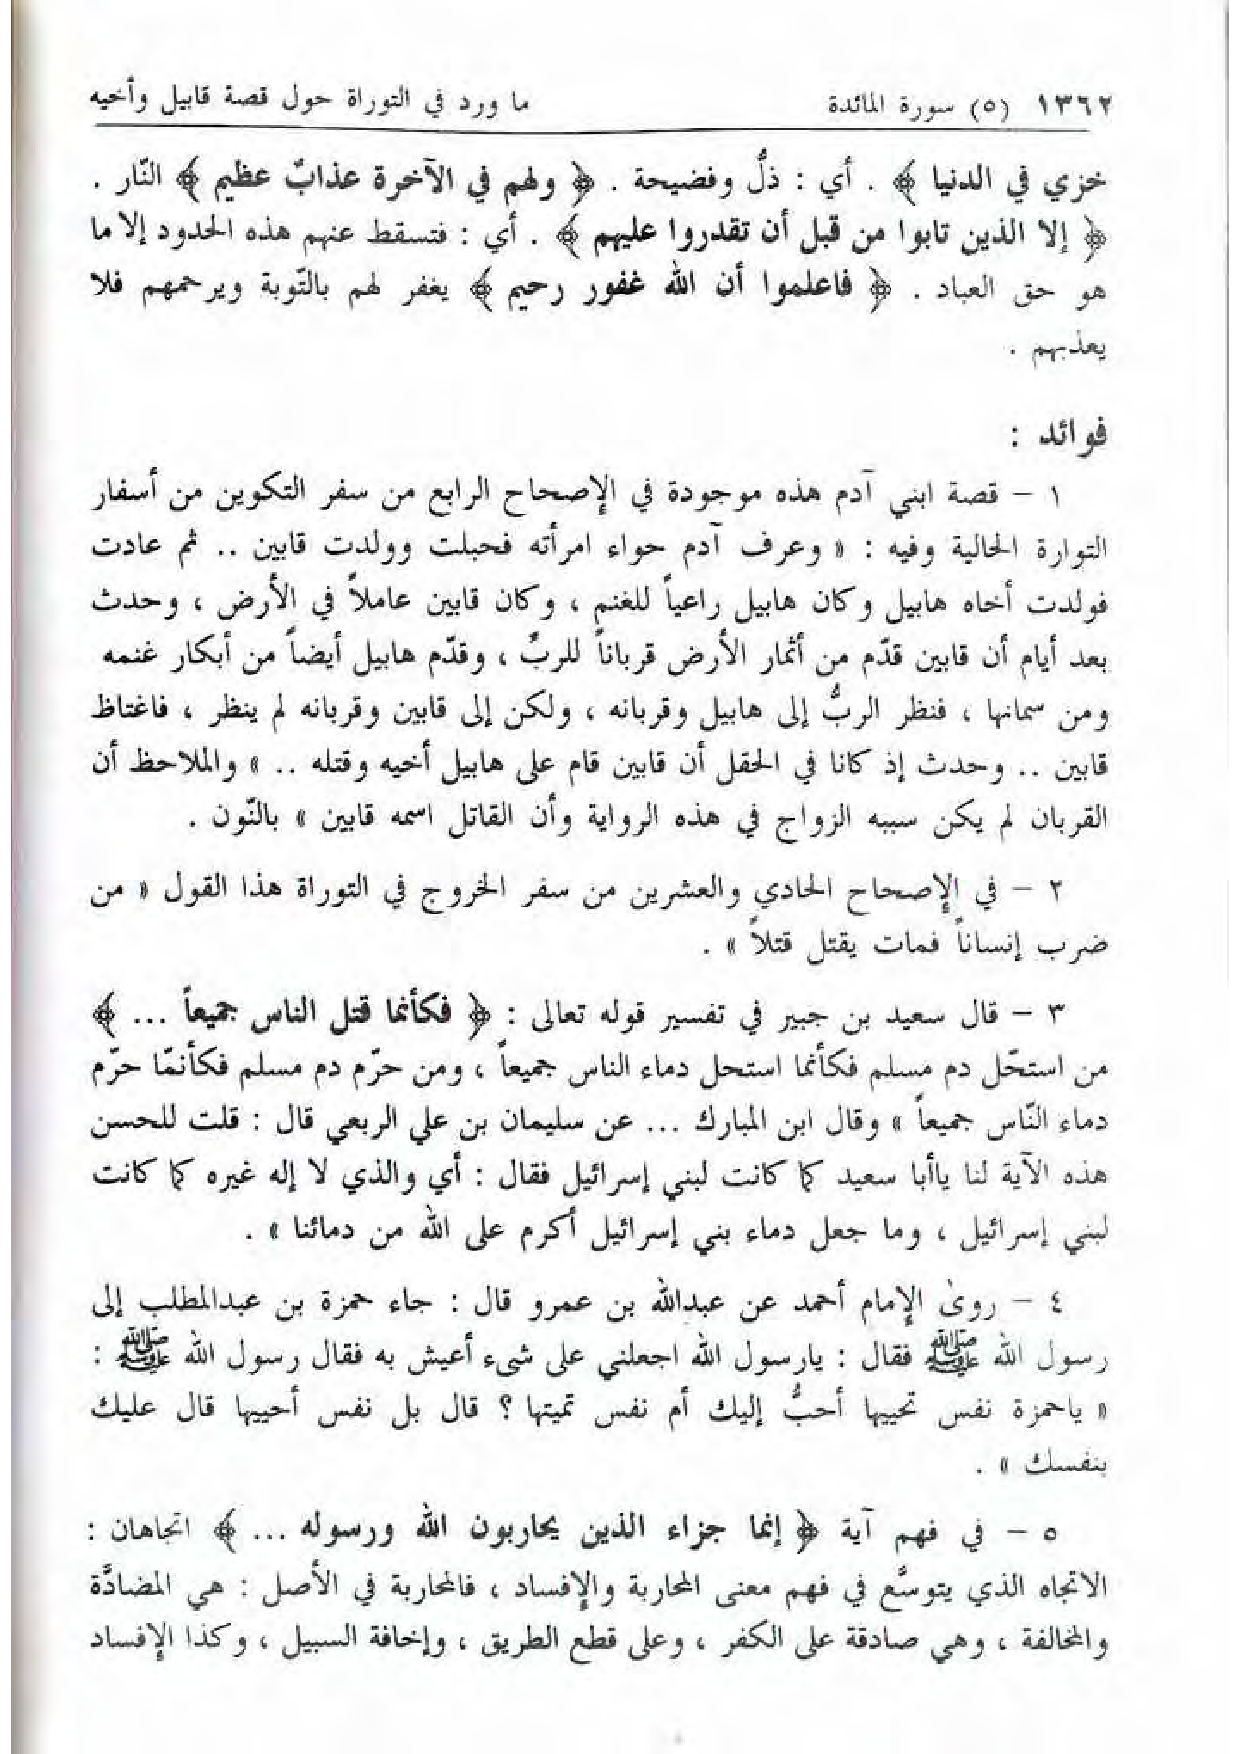 ١٣٦٢ (٥) سورة المائدة ما ورد في التوراة حول قصة قابيل وأخيه
خزي في الدنيا ﴾ . أي : ذلٌّ وفضيحة . ﴿ ولهم في الآخرة عذابٌ عظيم ﴾ النّار .
﴿ إلا الذين تابوا من قبل أن تقدروا عليهم ﴾ . أي : فتسقط عنهم هذه الحدود إلا ما
هو حق العباد . ﴿ فاعلموا أن الله غفور رحيم ﴾ يغفر لهم بالتّوبة ويرحمهم فلا
يعذبهم .
فوائد :
١ – قصة ابني آدم هذه موجودة في الإصحاح الرابع من سفر التكوين من أسفار
التوارة الحالية وفيه : « وعرف آدم حواء امرأته فحبلت وولدت قابين .. ثم عادت
فولدت أخاه هابيل وكان هابيل راعياً للغنم ، وكان قابين عاملاً في الأرض ، وحدث
بعد أيام أن قابين قدّم من أثمار الأرض قرباناً للربِّ ، وقدّم هابيل أيضاً من أبكار غنمه
ومن سمانها ، فنظر الربُّ إلى هابيل وقربانه ، ولكن إلى قابين وقربانه لم ينظر ، فاغتاظ
قابين .. وحدث إذ كانا في الحقل أن قابين قام على هابيل أخيه وقتله .. » والملاحظ أن
القربان لم يكن سببه الزواج في هذه الرواية وأن القاتل اسمه قابين » بالنّون .
٢ – في الإصحاح الحادي والعشرين من سفر الخروج في التوراة هذا القول « من
ضرب إنساناً فمات يقتل قتلاً » .
٣ – قال سعيد بن جبير في تفسير قوله تعالى : ﴿ فكأنما قتل الناس جميعاً ... ﴾
من استحّل دم مسلم فكأنما استحل دماء الناس جميعاً ، ومن حرّم دم مسلم فكأنمّا حرّم
دماء النّاس جميعاً » وقال ابن المبارك ... عن سليمان بن علي الربعي قال : قلت للحسن
هذه الآية لنا ياأبا سعيد كما كانت لبني إسرائيل فقال : أي والذي لا إله غيره كما كانت
لبني إسرائيل ، وما جعل دماء بني إسرائيل أكرم على الله من دمائنا » .
٤ – روىٰ الإمام أحمد عن عبدالله بن عمرو قال : جاء حمزة بن عبدالمطلب إلى
رسول الله ﷺ فقال : يارسول الله اجعلني على شيء أعيش به فقال رسول الله ﷺ :
« ياحمزة نفس تحييها أحبُّ إليك أم نفس تميتها ؟ قال بل نفس أحييها قال عليك
بنفسك » .
٥ – في فهم آية ﴿ إنما جزاء الذين يحاربون الله ورسوله ... ﴾ اتجاهان :
الاتجاه الذي يتوسَّع في فهم معنى المحاربة والإفساد ، فالمحاربة في الأصل : هي المضادَّة
والمخالفة ، وهي صادقة على الكفر ، وعلى قطع الطريق ، وإخافة السبيل ، وكذا الإفساد